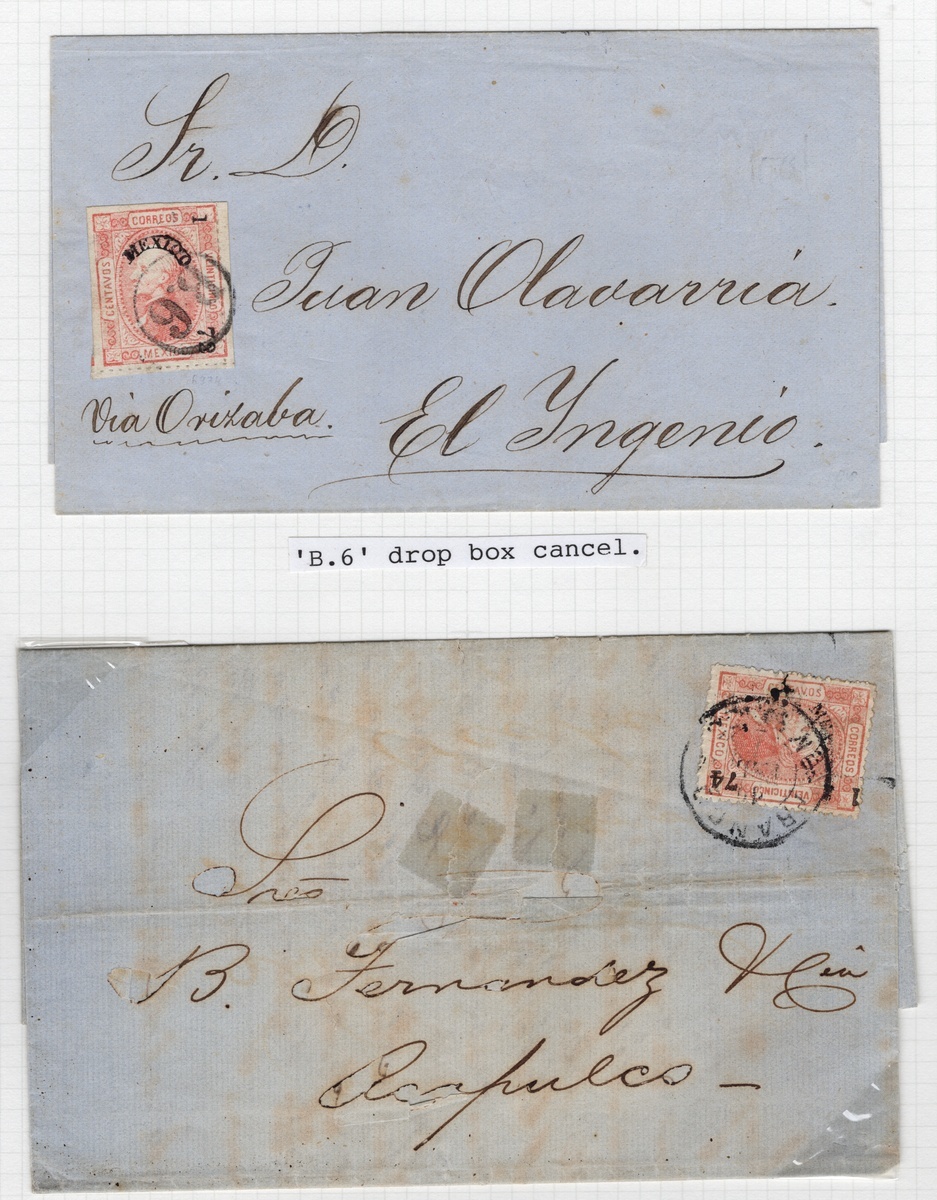 Sr. D.
CORREOS
1
MEXICO
CENTAVOS
MEXICO
Juan Olavarria.
Via Orizaba.
El Ingenio.
'B.6' drop box cancel.
CORREOS
MEXICO
VEINTICINCO
74
1
Sres
B. Fernandez y Cia
Acapulco —